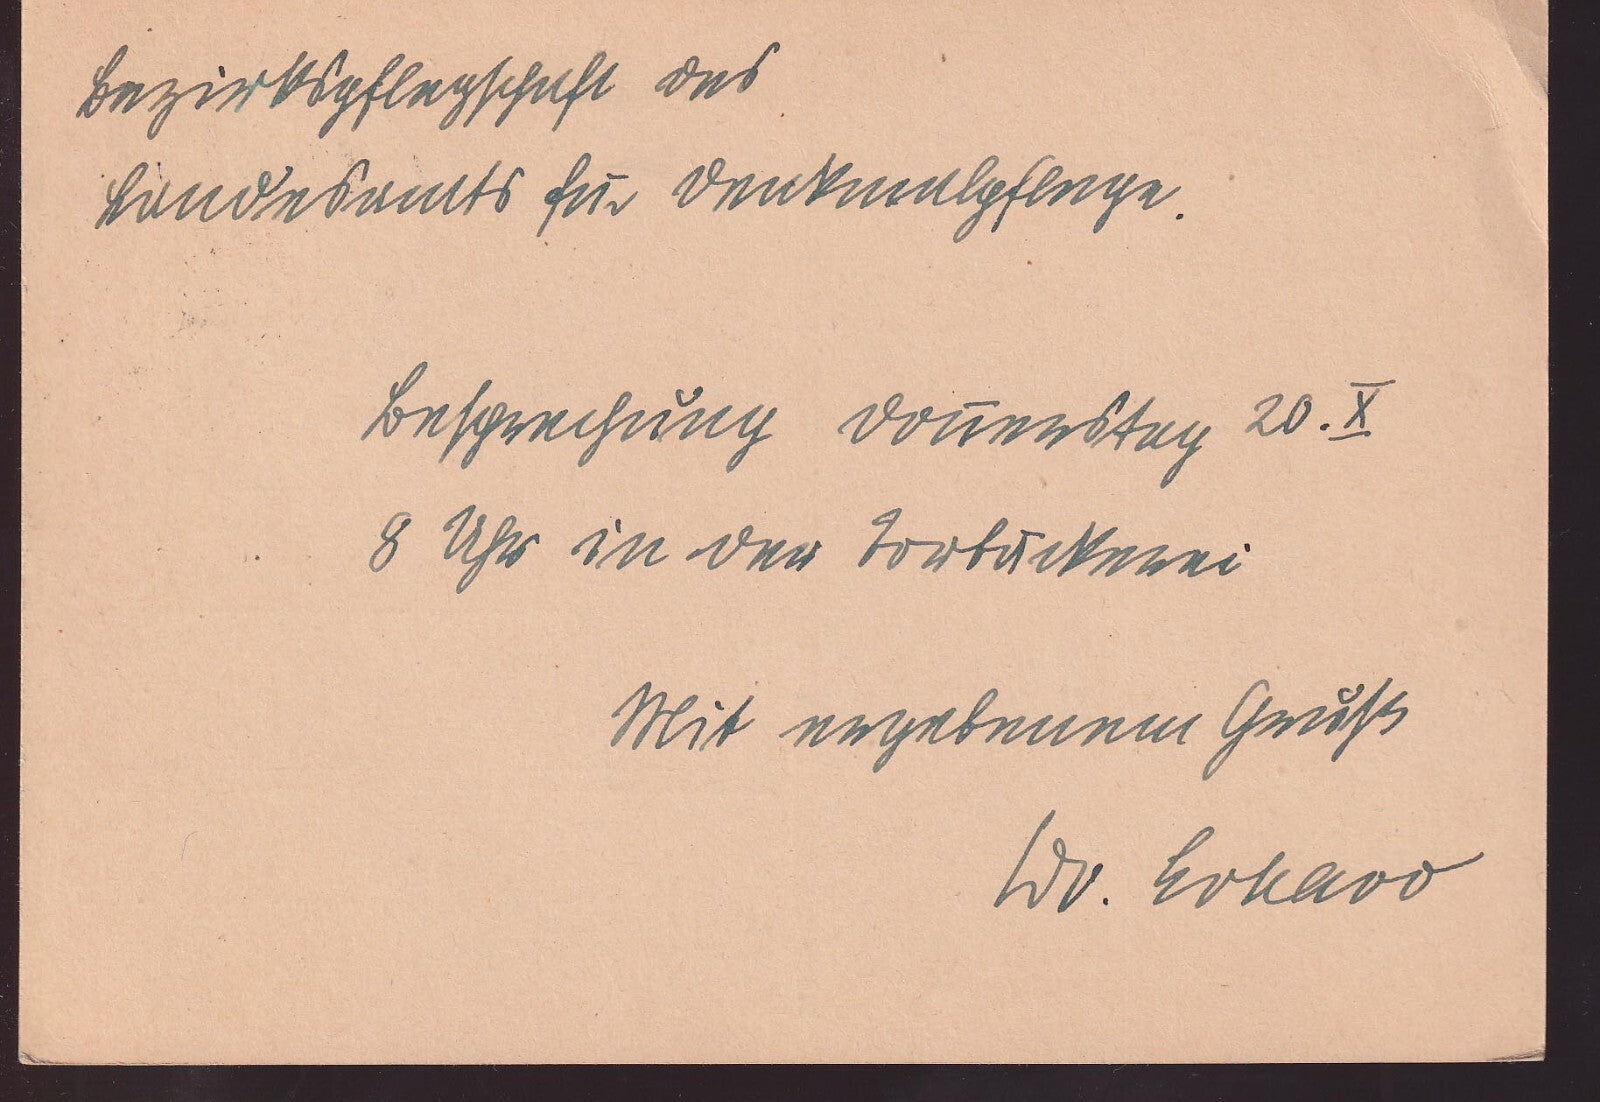 Bezirkspflegschaft des
Landesamts für Denkmalpflege.
Besprechung Donnerstag 20. X
8 Uhr in der Torbäckerei
Mit ergebenem Gruß
Dr.